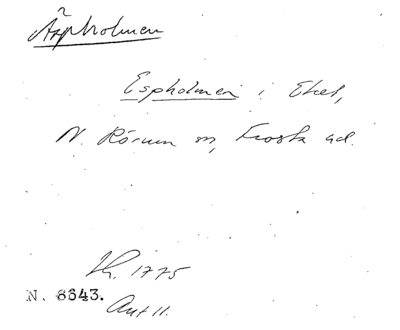 Äspholmen
Espholmen i Eket,
N. Rörum sn, Frosta hd.
Lh. 1775
N. 6343.
Akt 11.